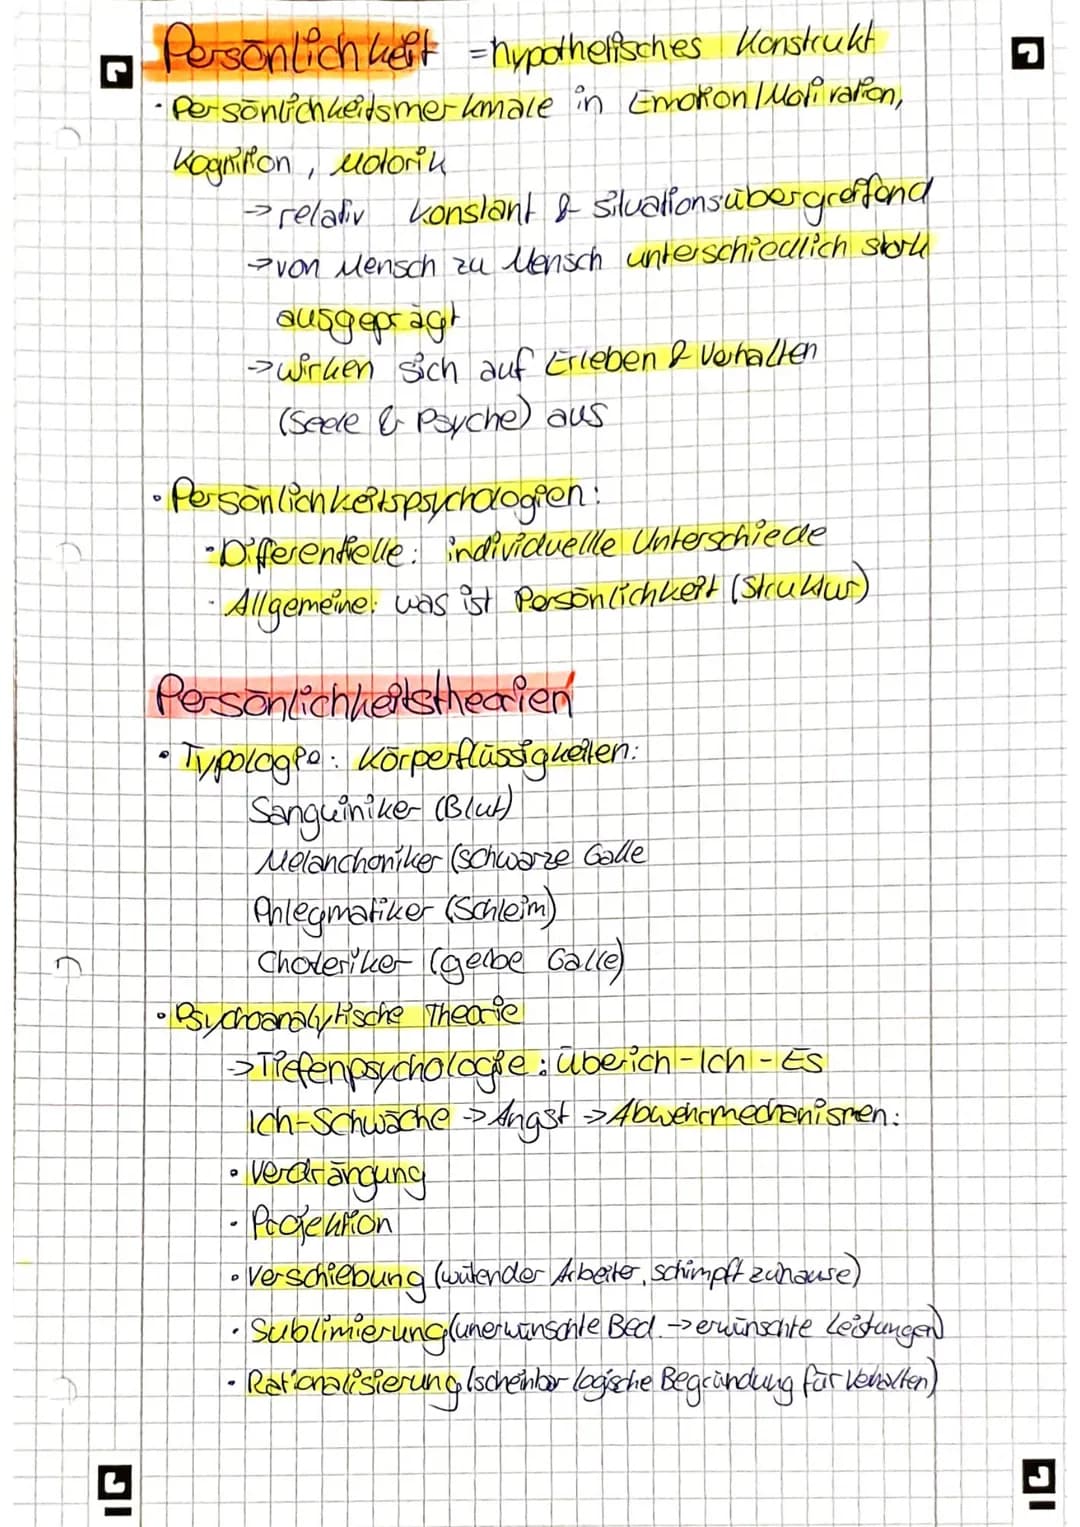 Persönlichkeit = hypothetisches Konstrukt
· Persönlichkeitsmerkmale in Emotion/Motivation,
Kognition, Motorik
→ relativ konstant & situationsübergreifend
→ von Mensch zu Mensch unterschiedlich stark
ausgeprägt
→ wirken sich auf Erleben & Verhalten
(Seele & Psyche) aus
· Persönlichkeitspsychologien:
· Differentielle: individuelle Unterschiede
· Allgemeine: was ist Persönlichkeit (Struktur)
Persönlichkeitstheorien
· Typologie: Körperflüssigkeiten:
Sanguiniker (Blut)
Melanchoniker (schwarze Galle
Phlegmatiker (Schleim)
Choleriker (gelbe Galle)
· Psychoanalytische Theorie
→ Tiefenpsychologie: Überich - Ich - Es
Ich-Schwäche → Angst → Abwehrmechanismen:
· Verdrängung
· Projektion
· Verschiebung (wütender Arbeiter, schimpft zuhause)
· Sublimierung (unerwünschte Bed. → erwünschte Leistungen)
· Rationalisierung (scheinbar logische Begründung für Verhalten)